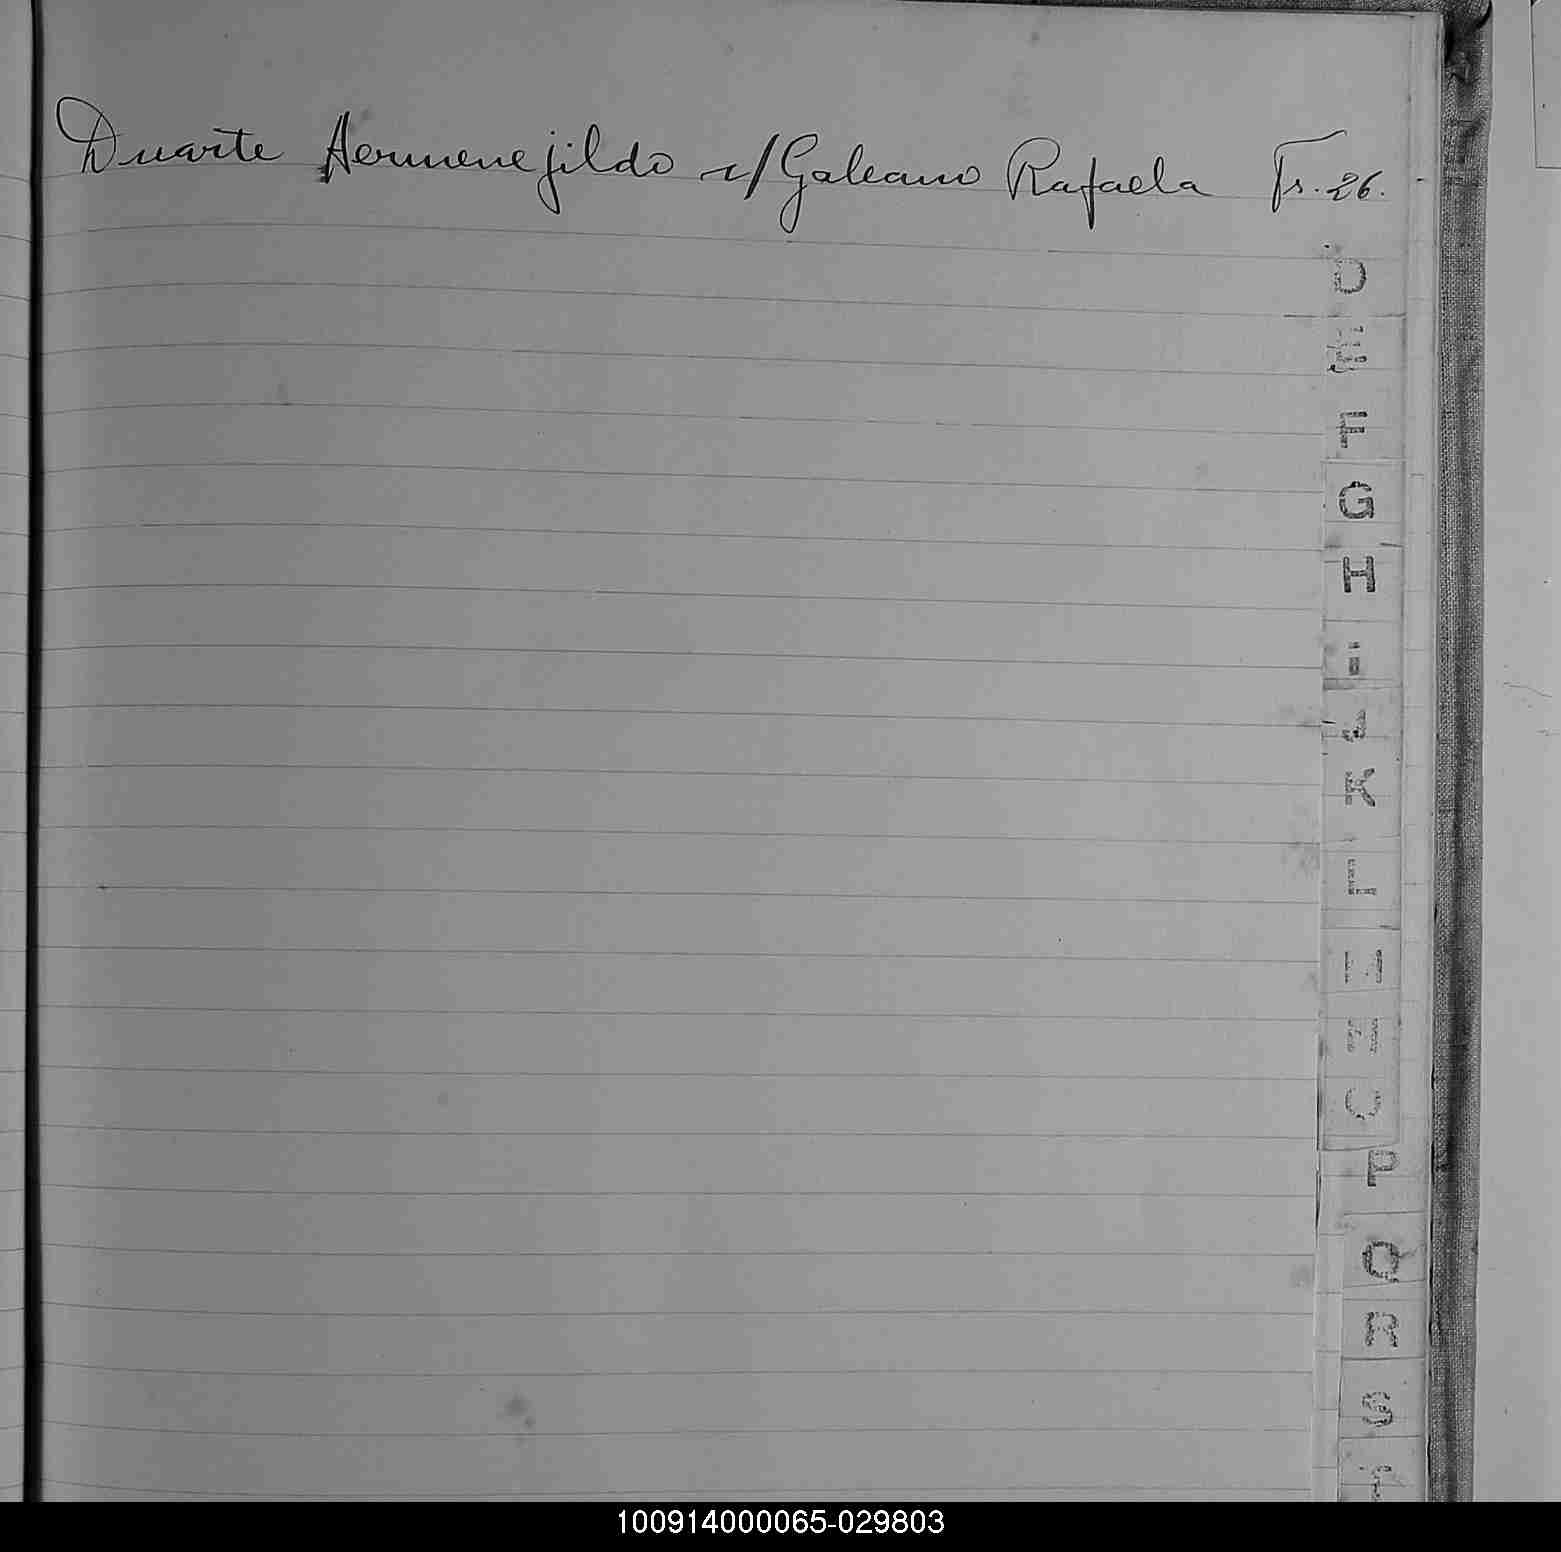 Duarte Hermenejildo c/ Galeano Rafaela Fs. 26.
D
E
F
G
H
i
J
K
L
M
N
O
P
Q
R
S
T
100914000065-029803